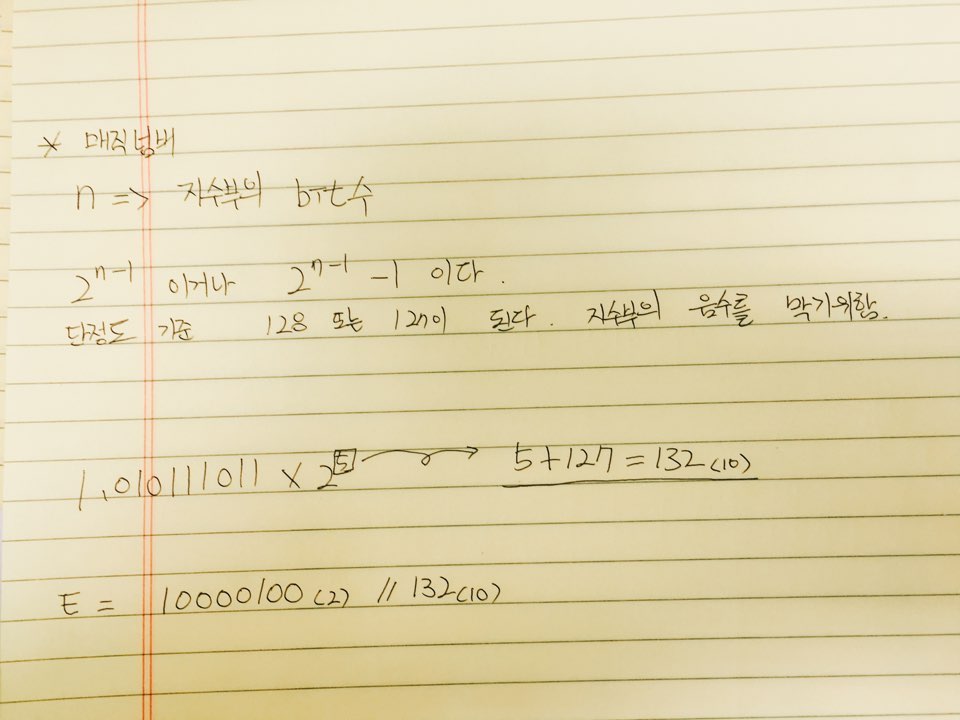 * 매직넘버
n => 지수부의 bit수
2^{n-1} 이거나 2^{n-1} -1 이다.
단정도 기준 128 또는 127이 된다. 지수부의 음수를 막기위함.
1.010111011 × 2^5 → 5+127=132(10)
E = 10000100(2) // 132(10)